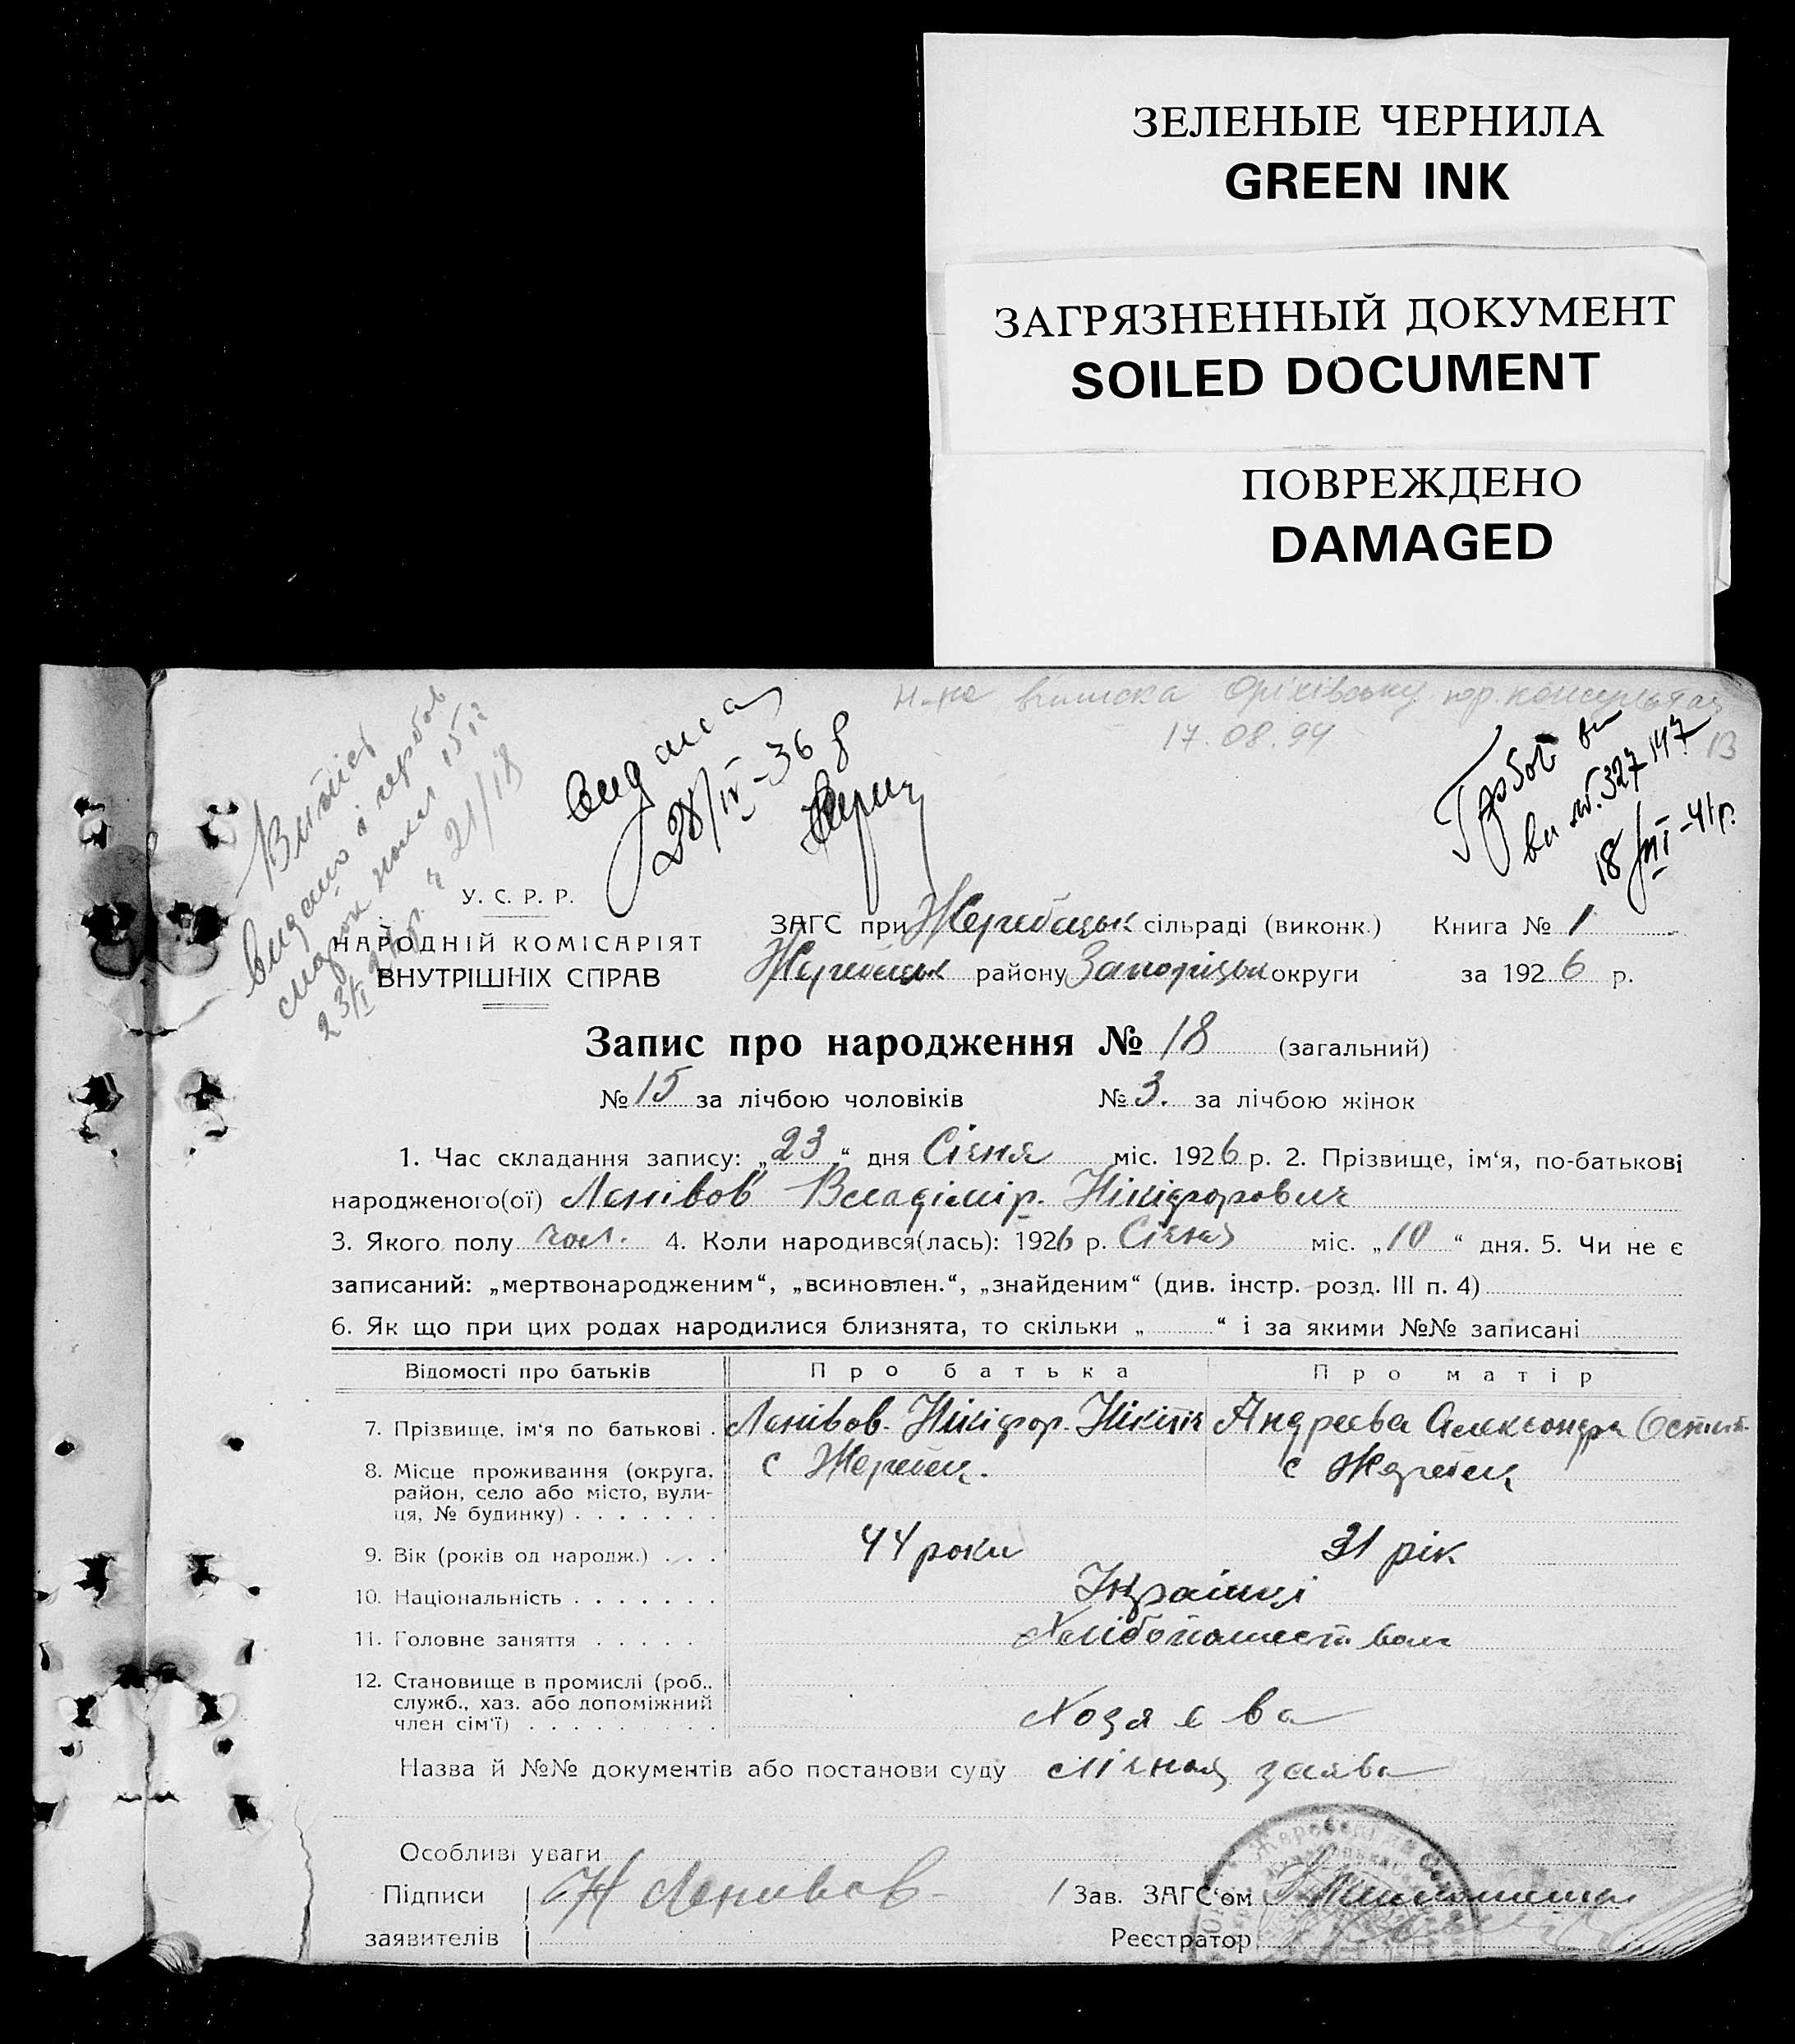 ЗЕЛЕНЫЕ ЧЕРНИЛА
GREEN INK
ЗАГРЯЗНЕННЫЙ ДОКУМЕНТ
SOILED DOCUMENT
ПОВРЕЖДЕНО
DAMAGED
виписка Оріхівську юр. консультац
17.08.94
13
Витяг
видано
21/18
видана
28/IV-36 р
327147
18/VI-41р.
У. С. Р. Р.
НАРОДНІЙ КОМІСАРІЯТ
ВНУТРІШНІХ СПРАВ
ЗАГС при Жеребецьк сільраді (виконк.) Книга № 1
Жеребецьк району Запорізьк округи за 1926 р.
Запис про народження № 18 (загальний)
№ 15 за лічбою чоловіків № 3. за лічбою жінок
1. Час складання запису: „23“ дня Січня міс. 1926 р. 2. Прізвище, ім‘я, по-батькові
народженого(ої) Ленівов Владімір. Нікіфорович
3. Якого полу чол. 4. Коли народився(лась): 1926 р. Січня міс. „10“ дня. 5. Чи не є
записаний: „мертвонародженим“, „всиновлен.“, „знайденим“ (див. інстр. розд. III п. 4)
6. Як що при цих родах народилися близнята, то скільки „ “ і за якими №№ записані
Відомості про батьків Про батька Про матір
7. Прізвище, ім‘я по батькові . Ленівов Нікіфор. Нікіт Андреєва Александра
8. Місце проживання (округа, с Жеребец. с Жеребец
район, село або місто, вули-
ця, № будинку) . . . . . . .
9. Вік (років од народж.) . . . 44 роки 31 рік
10. Національність . . . . . . . Українці
11. Головне заняття . . . . . Хлібопашеством
12. Становище в промислі (роб.,
служб., хаз. або допоміжний
член сім‘ї) . . . . . . . . . Хозяєва
Назва й №№ документів або постанови суду лічная заява
Особливі уваги
Підписи Н Ленивов Зав. ЗАГС‘ом
заявителів Реєстратор